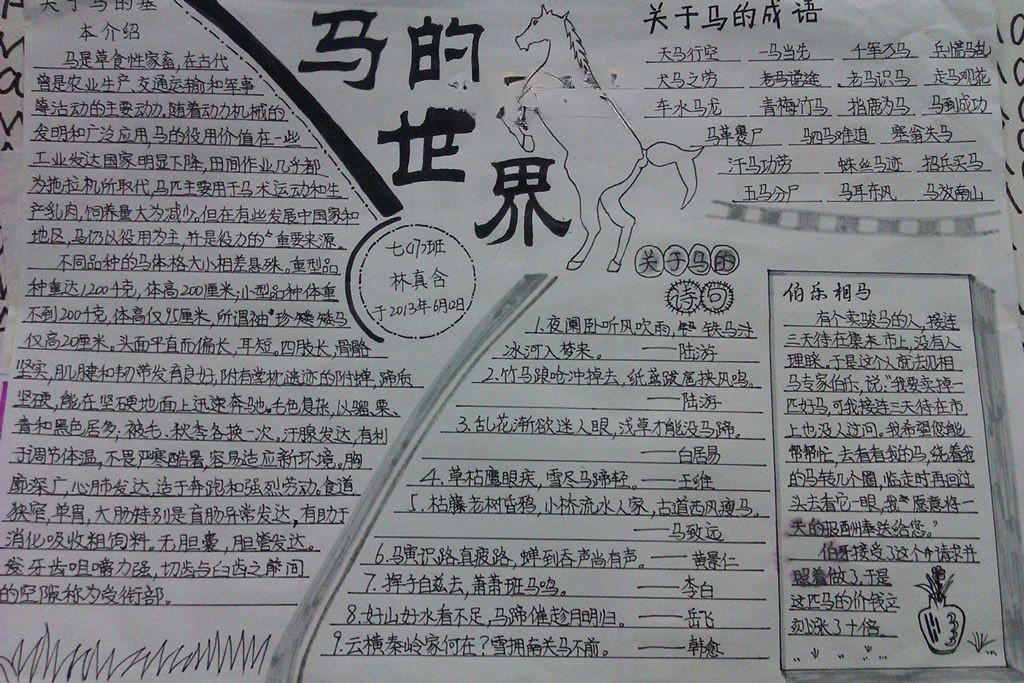 关于马的基
本介绍
马是草食性家畜,在古代
曾是农业生产、交通运输和军事
等活动的主要动力。随着动力机械的
发明和广泛应用,马的役用价值在一些
工业发达国家明显下降,田间作业几乎都
为拖拉机所取代,马匹主要用于马术运动和生
产乳肉,饲养量大为减少。但在有些发展中国家和
地区,马仍以役用为主,并是役力的重要来源。
不同品种的马体格大小相差悬殊。重型品
种重达1200千克,体高200厘米;小型品种体重
不到200千克,体高仅95厘米,所谓袖珍矮马
仅高20厘米。头面平直而偏长,耳短。四肢长,骨骼
坚实,肌腱和韧带发育良好,附有掌枕遗迹的附蝉,蹄质
坚硬,能在坚硬地面上迅速奔驰。毛色复杂,以骝、栗、
青和黑色居多;被毛、秋季各换一次。汗腺发达,有利
于调节体温,不畏严寒酷暑,容易适应新环境。胸
廓深广,心肺发达,适于奔跑和强烈劳动。食道
狭窄,单胃,大肠特别是盲肠异常发达,有助于
消化吸收粗饲料。无胆囊,胆管发达。
牙齿咀嚼力强,切齿与臼齿之间
的空隙称为受衔部。
马的
世
界
七(7)班
林真含
于2013年6月0日
关于马的成语
天马行空 一马当先 千军万马 兵慌马乱
犬马之劳 老马识途 老马识马 走马观花
车水马龙 青梅竹马 指鹿为马 马到成功
马革裹尸 驷马难追 塞翁失马
汗马功劳 蛛丝马迹 招兵买马
五马分尸 马耳东风 马放南山
关于马的
诗句
1.夜阑卧听风吹雨,铁马
冰河入梦来。 ——陆游
2.竹马踉呛冲掉去,纸鸢跋扈挟风鸣。
——陆游
3.乱花渐欲迷人眼,浅草才能没马蹄。
——白居易
4.草枯鹰眼疾,雪尽马蹄轻。——王维
5.枯藤老树昏鸦,小桥流水人家,古道西风瘦马。
——马致远
6.马寅识路真疲路,蝉到吞声尚有声。——黄景仁
7.挥手自兹去,萧萧班马鸣。——李白
8.好山好水看不足,马蹄催趁月明归。——岳飞
9.云横秦岭家何在?雪拥南关马不前。——韩愈
伯乐相马
有个卖骏马的人,接连
三天待在集市上,没有人
理睬。于是这个人就去见相
马专家伯乐,说:"我要卖掉一
匹好马,可我接连三天待在市
上也没人过问。我希望您能
帮帮忙,去看看我的马,绕着我
的马转几个圈,临走时再回过
头去看它一眼,我愿意将一
天的报酬奉送给您。"
伯乐接受了这个请求并
照着做了,于是
这匹马的价钱立
刻涨了十倍。